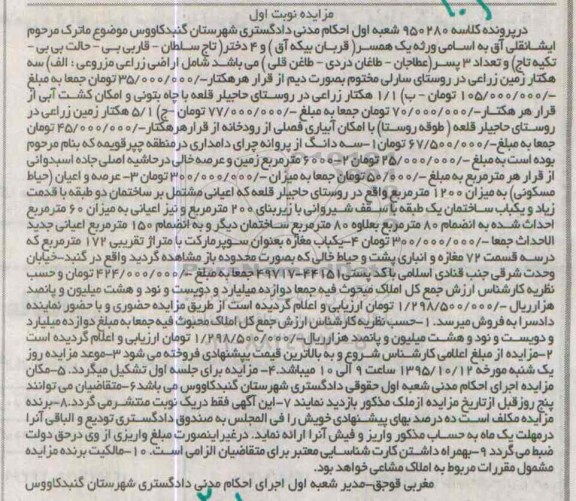 مزایده نوبت اول
درپرونده کلاسه ۹۵۰۲۸۰ شعبه اول احکام مدنی دادگستری شهرستان گنبدکاووس موضوع ماترک مرحوم
ایشانقلی آق به اسامی ورثه یک همسر( قربان بیکه آق ) و ۴ دختر( تاج سلطان - قاربی بی - حالت بی بی -
تکیه تاج) و تعداد ۳ پسر(عطاجان - طاغان دردی - طاغن قلی ) می باشد شامل اراضی زراعی مزروعی : الف) سه
هکتار زمین زراعی در روستای سارلی مختوم بصورت دیم از قرار هرهکتار-/۳۵/۰۰۰/۰۰۰ تومان جمعا به مبلغ
-/۱۰۵/۰۰۰/۰۰۰ تومان - ب) ۱/۱ هکتار زراعی در روستای حاجیلر قلعه با چاه بتونی و امکان کشت آبی از
قرار هر هکتار-/۷۰/۰۰۰/۰۰۰ تومان جمعا به مبلغ-/۷۷/۰۰۰/۰۰۰ تومان -ج) ۱/۵ هکتار زمین زراعی در
روستای حاجیلر قلعه (طوقه روستا) با امکان آبیاری فصلی از رودخانه از قرارهرهکتار-/۴۵/۰۰۰/۰۰۰ تومان
جمعا به مبلغ-/۶۷/۵۰۰/۰۰۰ تومان۱-سه دانگ از پروانه چرای دامداری درمنطقه چپرقویمه که بنام مرحوم
بوده است به مبلغ -/۲۵/۰۰۰/۰۰۰ تومان ۲-۶۰۰۰ مترمربع زمین و عرصه خالی درحاشیه اصلی جاده اسبدوانی
از قرار هر مترمربع به مبلغ -/۵۰/۰۰۰ تومان جمعا به میزان -/۳۰۰/۰۰۰/۰۰۰ تومان ۳- عرصه و اعیان (حیاط
مسکونی) به میزان ۱۲۰۰ مترمربع واقع در روستای حاجیلر قلعه که اعیانی مشتمل بر ساختمان دو طبقه با قدمت
زیاد و یکباب ساختمان یک طبقه با سقف شیروانی با زیربنای ۲۰۰ مترمربع و نیز اعیانی به میزان ۶۰ مترمربع
احداث شده به انضمام ۸۰ مترمربع بعلاوه ۸۰ مترمربع ساختمان دیگر و به انضمام ۱۵۰ مترمربع اعیانی جدید
الاحداث جمعا -/۳۰۰/۰۰۰/۰۰۰ تومان ۴-یکباب مغازه بعنوان سوپرمارکت با متراژ تقریبی ۱۷۲ مترمربع که
درسه قسمت ۷۲ مغازه و انباری پشت و حیاط خالی که بصورت محدوده باز مشاهده گردید واقع در گنبد-خیابان
وحدت شرقی جنب قنادی اسلامی با کد پستی ۴۴۱۵۱-۴۹۷۱۷ جمعا به مبلغ -/۴۲۴/۰۰۰/۰۰۰ تومان و حسب
نظریه کارشناس ارزش جمع کل املاک مبحوث فیه جمعا دوازده میلیارد و دویست و نود و هشت میلیون و پانصد
هزارریال -/۱/۲۹۸/۵۰۰/۰۰۰ تومان ارزیابی و اعلام گردیده است از طریق مزایده حضوری و با حضور نماینده
دادسرا به فروش میرسد. ۱-حسب نظریه کارشناس ارزش جمع کل املاک مبحوث فیه جمعا به مبلغ دوازده میلیارد
و دویست و نود و هشت میلیون و پانصد هزارریال-/۱/۲۹۸/۵۰۰/۰۰۰ تومان ارزیابی و اعلام گردیده است
۲-مزایده از مبلغ اعلامی کارشناس شروع و به بالاترین قیمت پیشنهادی فروخته می شود ۳-موعد مزایده روز
یک شنبه مورخه ۱۳۹۵/۱۰/۱۲ ساعت ۹ الی ۱۰ میباشد.۴- مزایده برای جلسه اول تشکیل میگردد. ۵-مکان
مزایده اجرای احکام مدنی شعبه اول حقوقی دادگستری شهرستان گنبدکاووس می باشد۶-متقاضیان می توانند
پنج روزقبل ازتاریخ مزایده ازملک مذکور بازدید نمایند ۷-این آگهی فقط دریک نوبت منتشر می گردد.۸-برنده
مزایده مکلف است ده درصد بهای پیشنهادی خویش را فی المجلس به صندوق دادگستری تودیع و الباقی آنرا
درمهلت یک ماه به حساب مذکور واریز و فیش آنرا ارائه نماید. درغیراینصورت مبلغ واریزی از وی درحق دولت
ضبط می گردد ۹-بهمراه داشتن کارت شناسایی معتبر برای متقاضیان الزامی است. ۱۰-مالکیت برنده مزایده
مشمول مقررات مربوط به املاک مشاعی خواهد بود.
مغربی قوجق-مدیر شعبه اول اجرای احکام مدنی دادگستری شهرستان گنبدکاووس